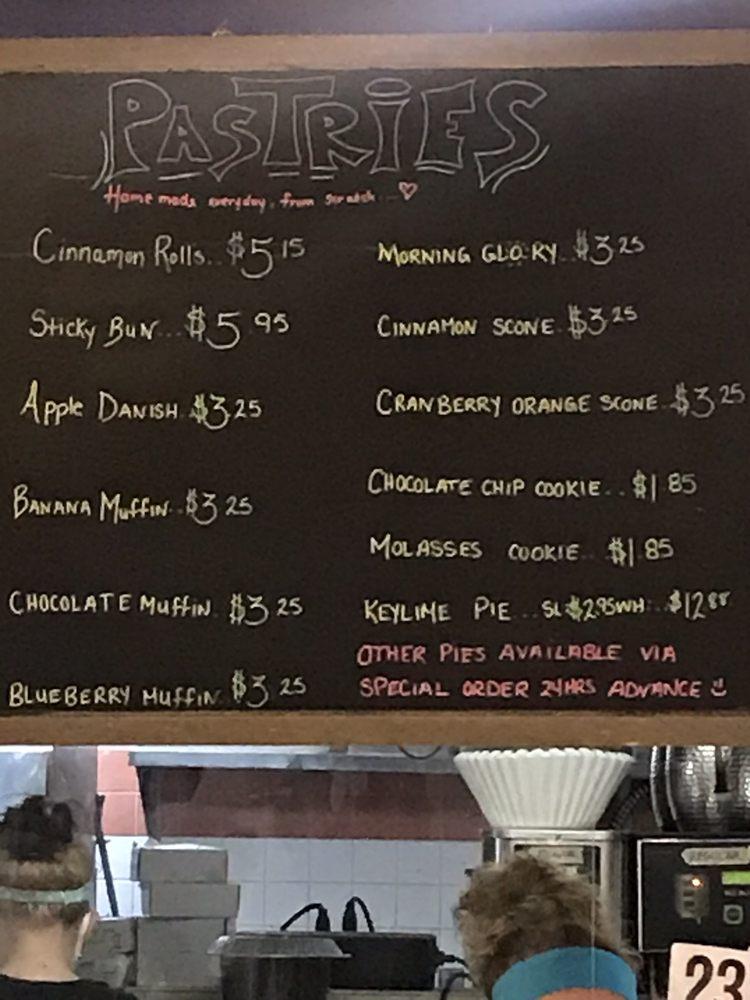 PASTRiES
Home made everyday, from scratch
Cinnamon Rolls.. $5 15
Sticky Bun... $5 95
Apple Danish $3 25
Banana Muffin.. $3 25
Chocolate Muffin $3 25
Blueberry Muffin $3 25
Morning Glory.. $3 25
Cinnamon Scone. $3 25
Cranberry Orange Scone. $3 25
Chocolate Chip Cookie.. $1 85
Molasses Cookie.. $1.85
Keylime Pie... SL $2.95 WH...
OTHER PIES AVAILABLE VIA
SPECIAL ORDER 24HRS ADVANCE
23